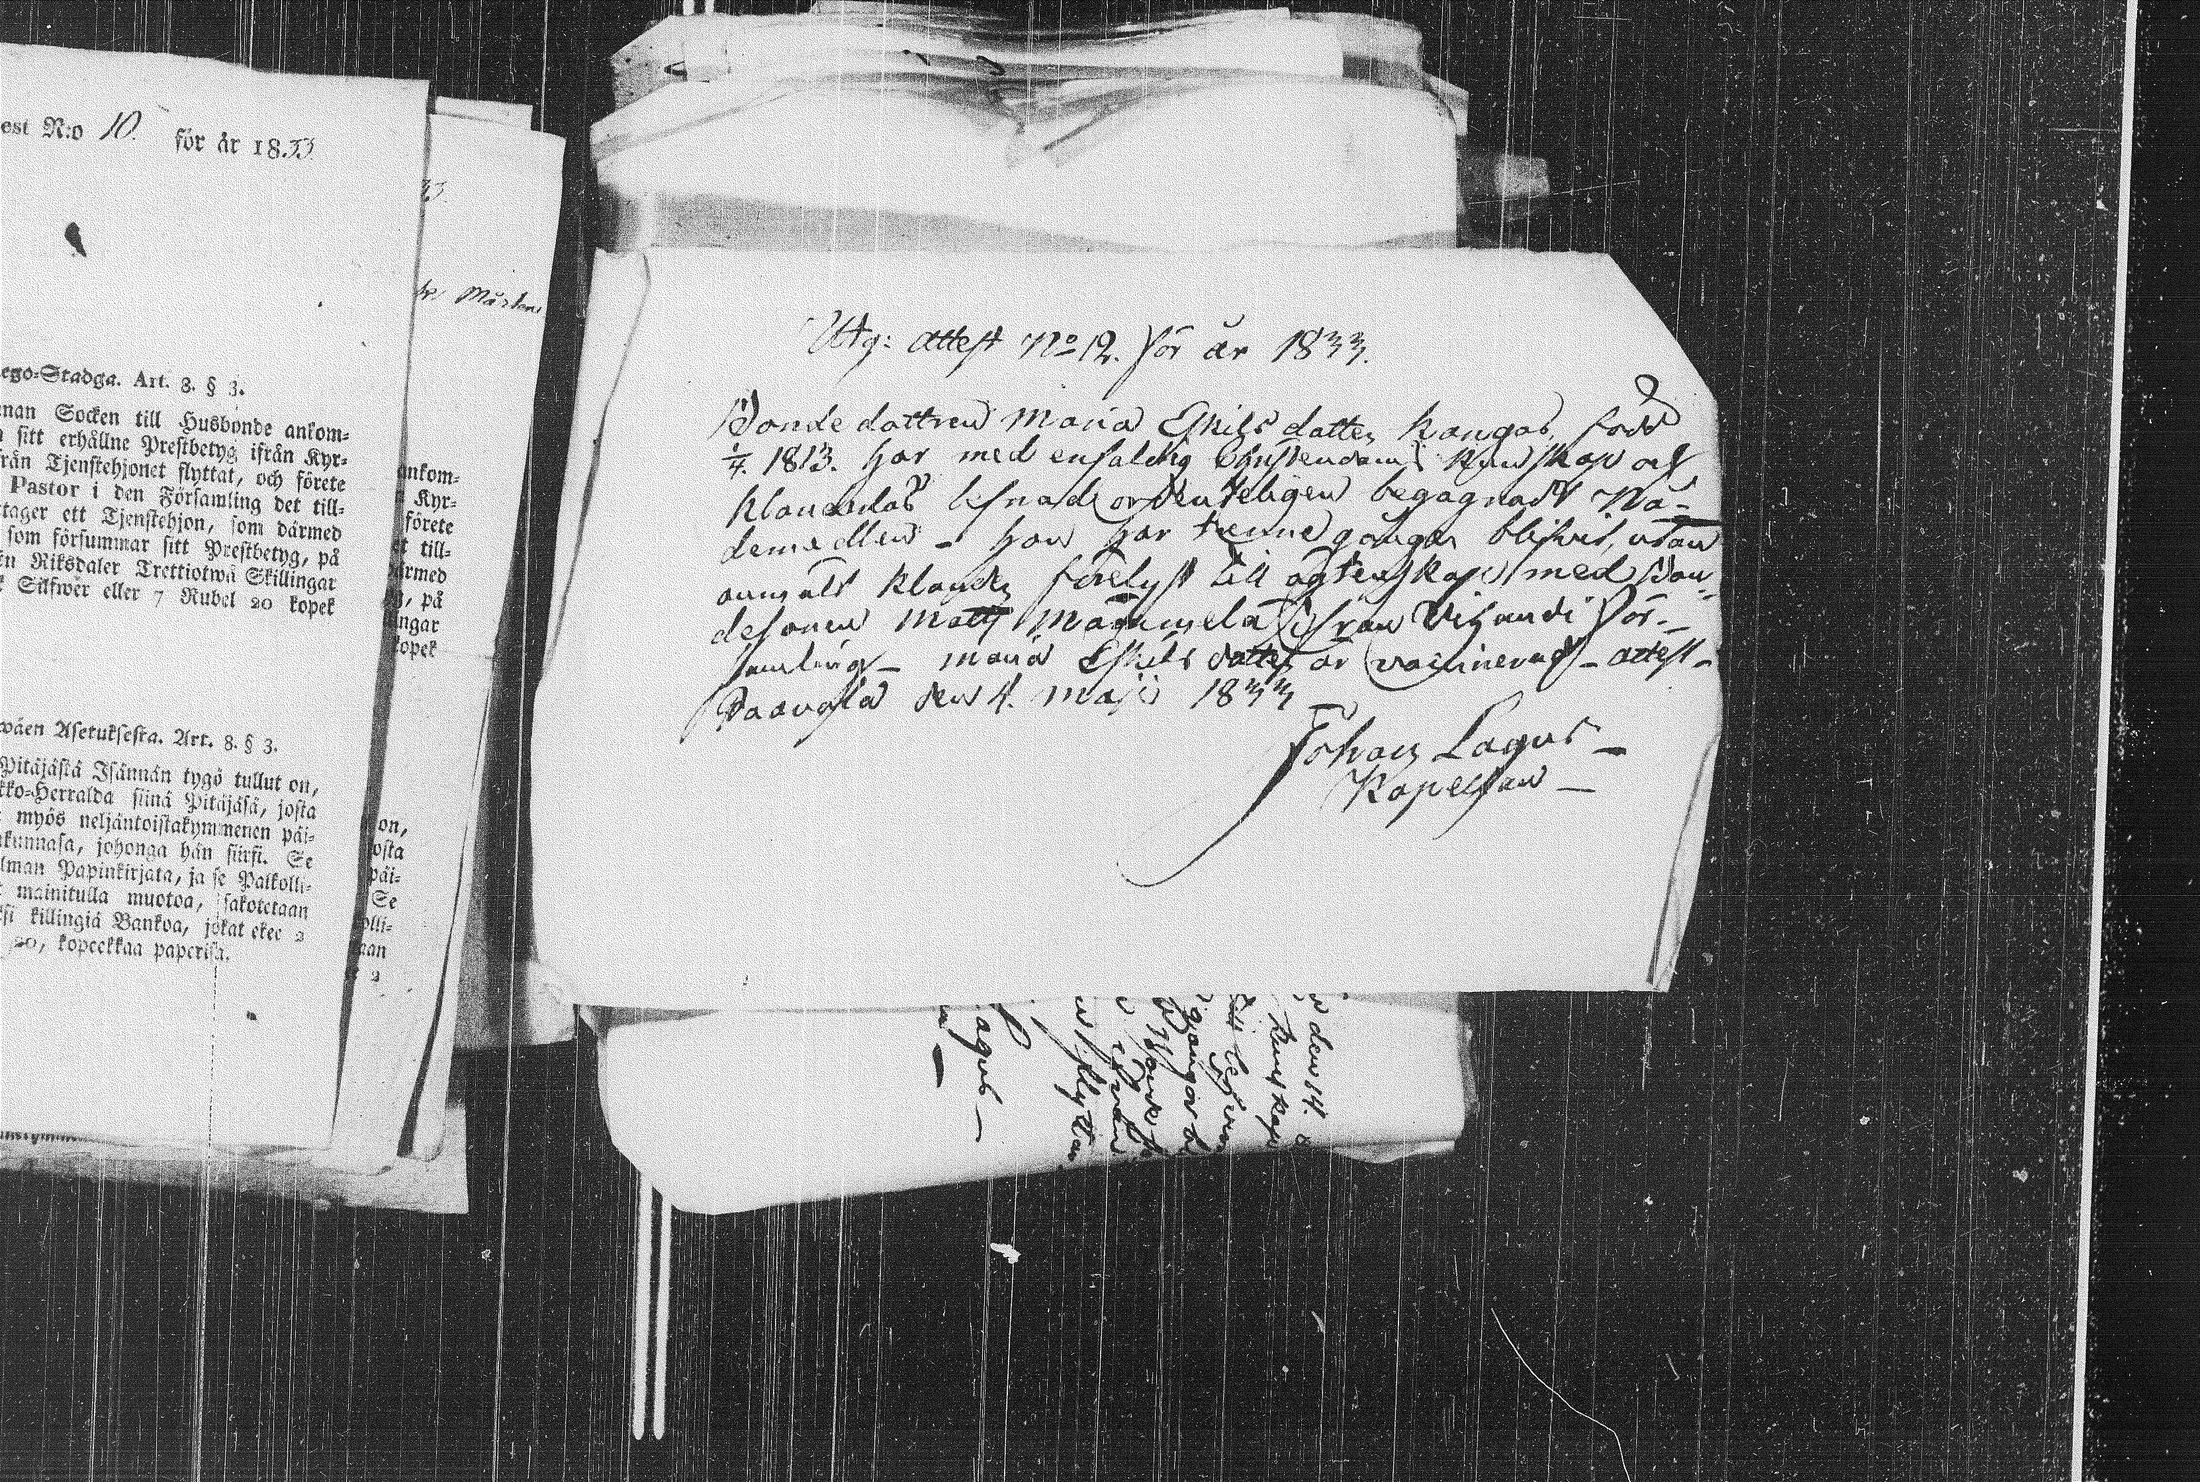 est N:o 10. för år 1833
33
Mårten
ego-Stadga. Art. 8. § 3.
nan Socken till Husbonde ankom-
sitt erhållne Prestbetyg ifrån Kyr-
från Tjenstehjonet flyttat, och förete
Pastor i den Församling det till-
tager ett Tjenstehjon, som därmed
som försummar sitt Prestbetyg, på
en Riksdaler Trettiotwå Skillingar
Silfwer eller 7 Rubel 20 kopek
ankom-
Kyr-
förete
et till-
därmed
g, på
lingar
kopek
wäen Asetuksesta. Art. 8. § 3.
Pitäjästä Isännän tygö tullut on,
kko-Herralda siinä Pitäjäsä, josta
myös neljäntoistakymmenen päi-
akunnasa, johonga hän siirsi. Se
ilman Papinkirjata, ja se Palkolli-
mainitulla muotoa, sakotetaan
ksi killingiä Bankoa, jokat ekee 2
20, kopeekkaa paperisa.
on,
osta
päi-
Se
olli-
aan
2
Utg: attest No 12. för år 1833.
Bondedottren Maria Eskilsdotter Kangas, född
1/4. 1813. har med enfaldig Christendoms kunskap och
klanderlös lefnad ordenteligen begagnadt Nå-
demedlen - hon har trenne gångor blifvit, utan
anmält klander, förelyst till ägtenskap med Bon-
desonen Matts Mågumela ifrån Vihandi För-
samling - Maria Eskilsdotter är vaccinerad - attest-
Paavola den 4. Maji 1833
Johan Lagus -
Kapellan -
agus -
den 14.
kunskap